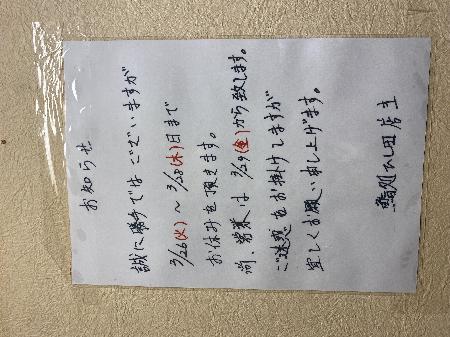 お知らせ
誠に勝手ではございますが
3/26(火)～3/28(木)日まで
お休みを頂きます。
尚、営業は3/29(金)から致します。
ご迷惑をお掛けしますが
宜しくお願い申し上げます。
鮨処ひし田店主